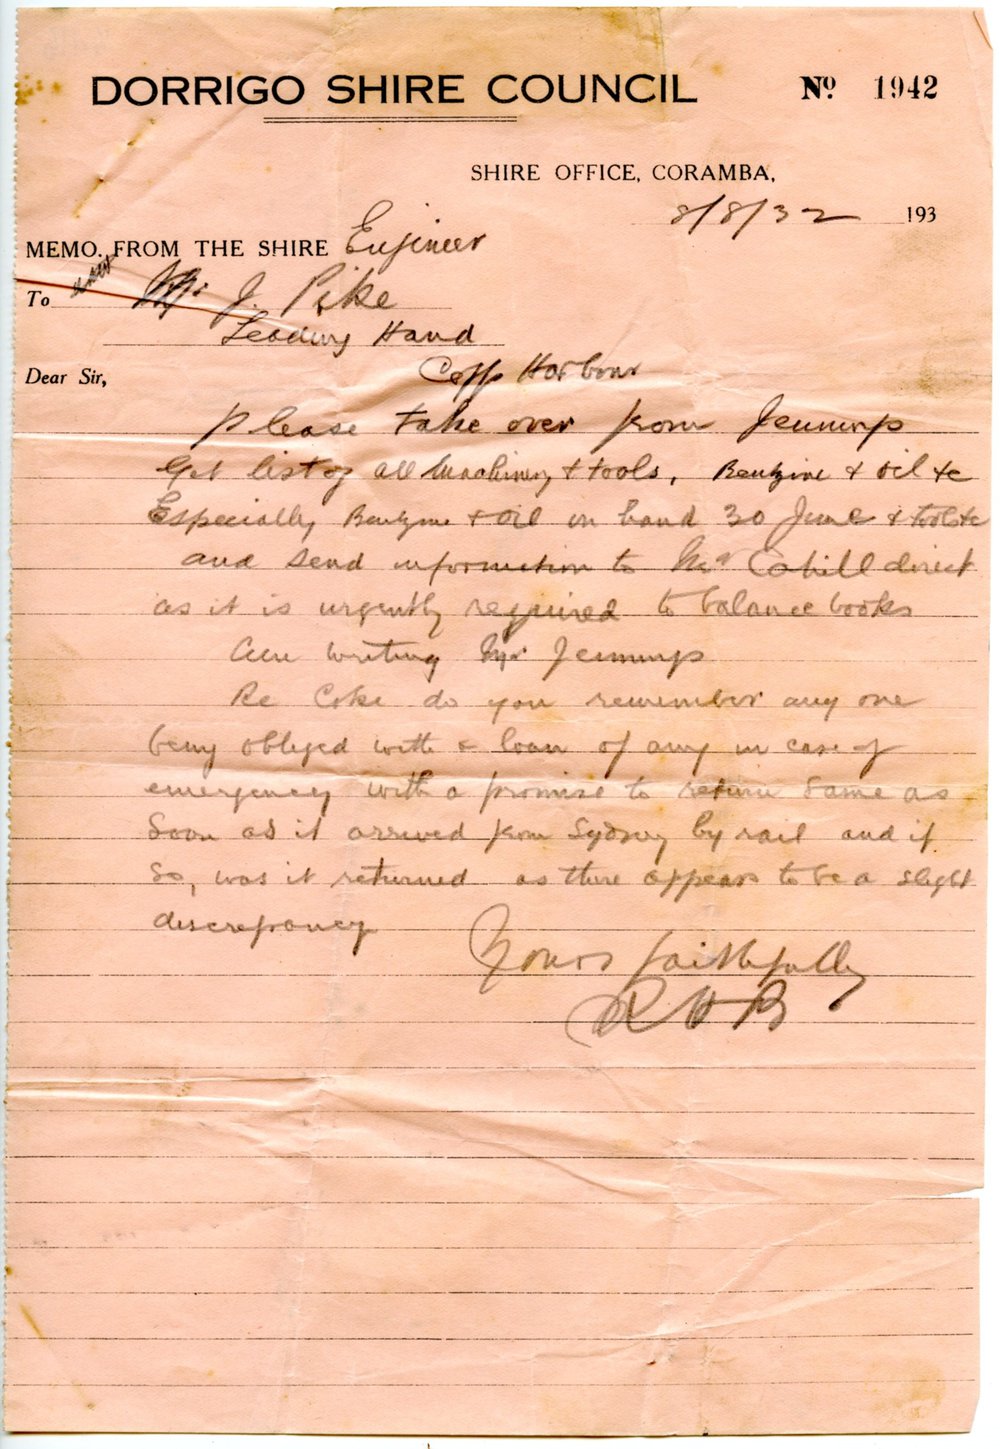 DORRIGO SHIRE COUNCIL Nº 1942
SHIRE OFFICE, CORAMBA,
8/8/32 193
MEMO. FROM THE SHIRE Engineer
To Mr. J. Pike
Leading Hand
Dear Sir, Coffs Harbour
Please take over from Jennings
Get list of all Machinery & tools, Benzine & oil &c
Especially Benzine & oil on hand 30 June & tools &c
and send information to Mr Cahill direct
as it is urgently required to balance books
Am writing Mr Jennings
Re Coke do you remember any one
being obliged with a loan of any in case of
emergency with a promise to return same as
soon as it arrived from Sydney by rail and if
so, was it returned as there appears to be a slight
discrepancy
Yours faithfully
R H B